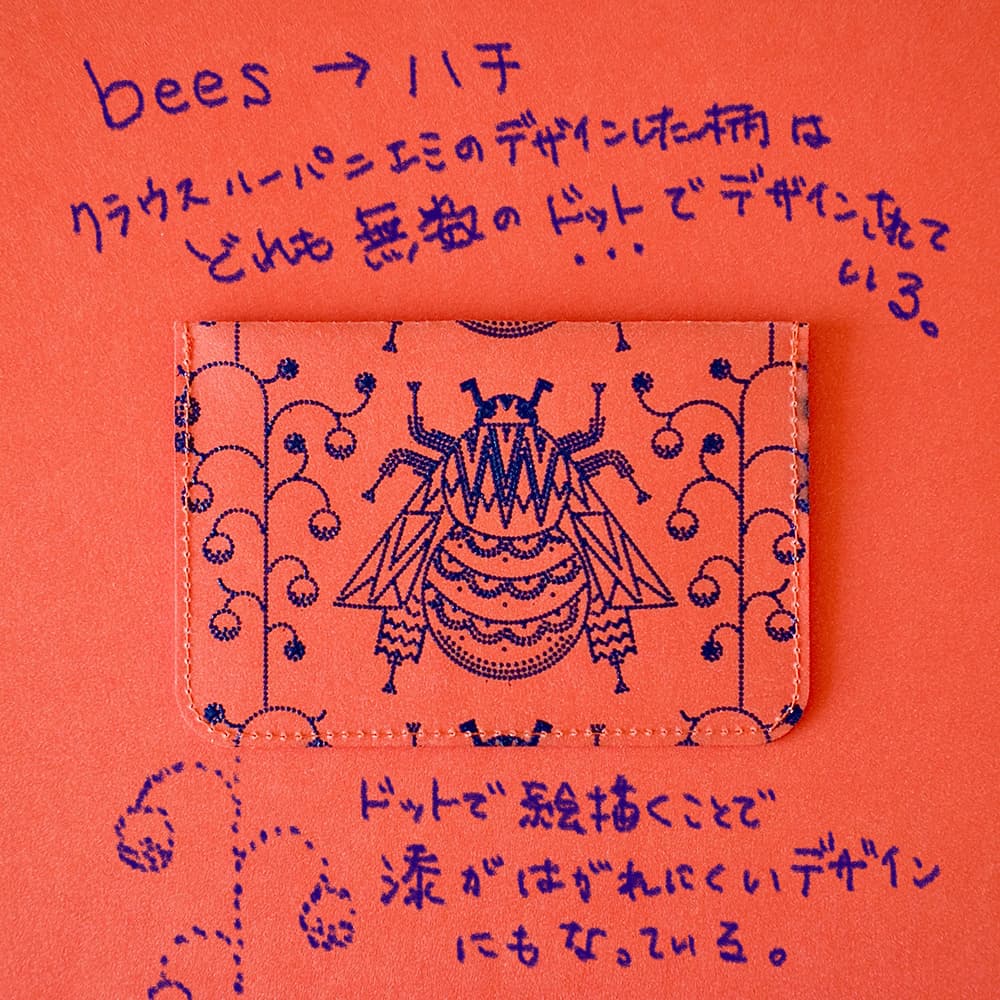 bees → ハチ
クラウスハーパニエミのデザインした柄は
どれも無数のドットでデザインされて
いる。
ドットで絵描くことで
漆がはがれにくいデザイン
にもなっている。